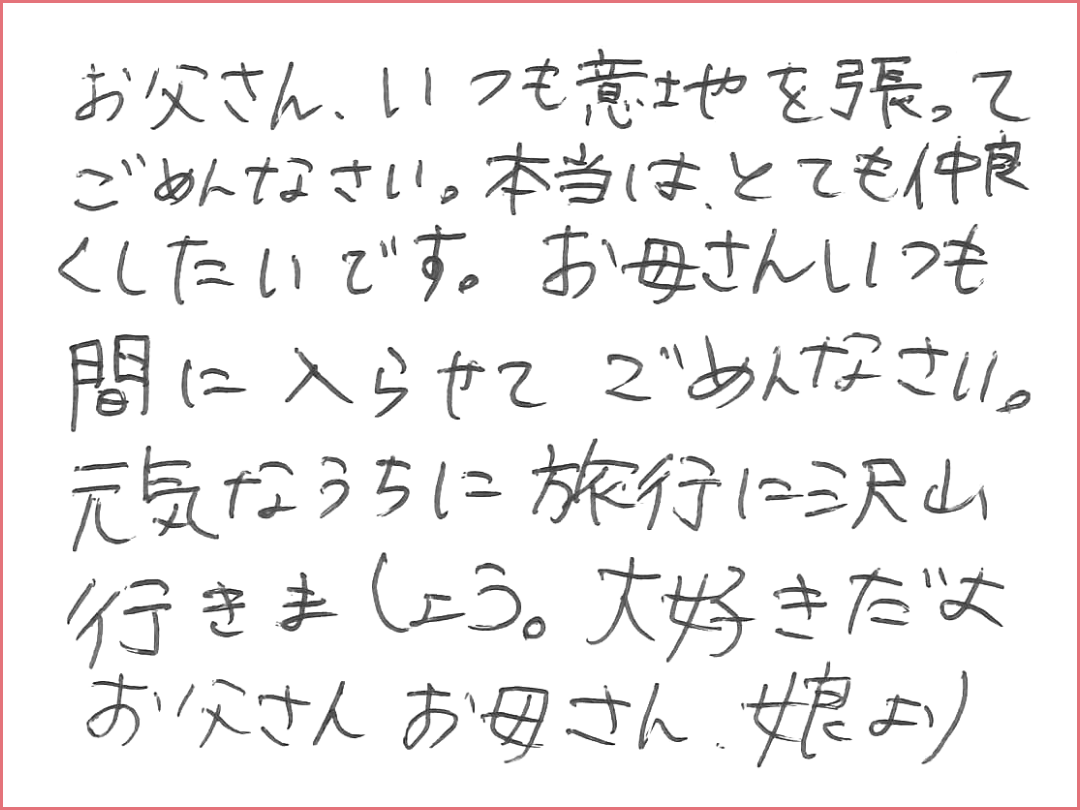 お父さん、いつも意地やを張って
ごめんなさい。本当は、とても仲良
くしたいです。お母さんいつも
間に入らせてごめんなさい。
元気なうちに旅行に沢山
行きましょう。大好きだよ
お父さん お母さん、娘より